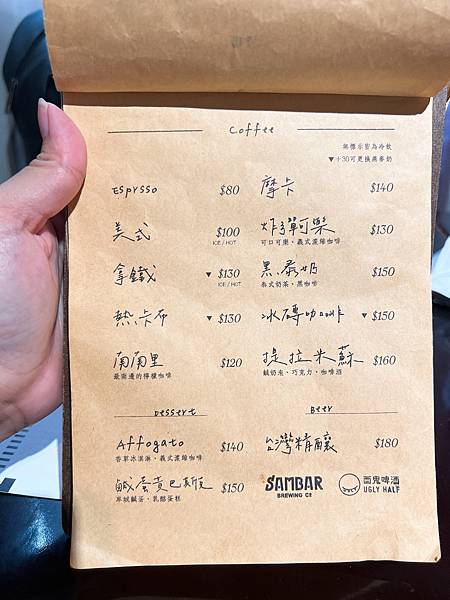 Coffee
無標示皆為冷飲
▼+30可更換燕麥奶
Espresso $80
美式 $100
ICE / HOT
拿鐵 ▼ $130
ICE / HOT
熱卡布 ▼ $130
南南里 $120
最南邊的檸檬咖啡
摩卡 $140
炸彈可樂 $130
可口可樂、義式濃縮咖啡
黑泰奶 $150
泰式奶茶、黑咖啡
冰磚咖啡 ▼ $150
提拉米蘇 $160
鹹奶泡、巧克力、咖啡酒
Dessert
Affogato $140
香草冰淇淋、義式濃縮咖啡
鹹蛋黃巴斯克 $150
鹹蛋、乳酪蛋糕
Beer
台灣精釀 $180
SAMBAR
BREWING Co
酉鬼啤酒
UGLY HALF